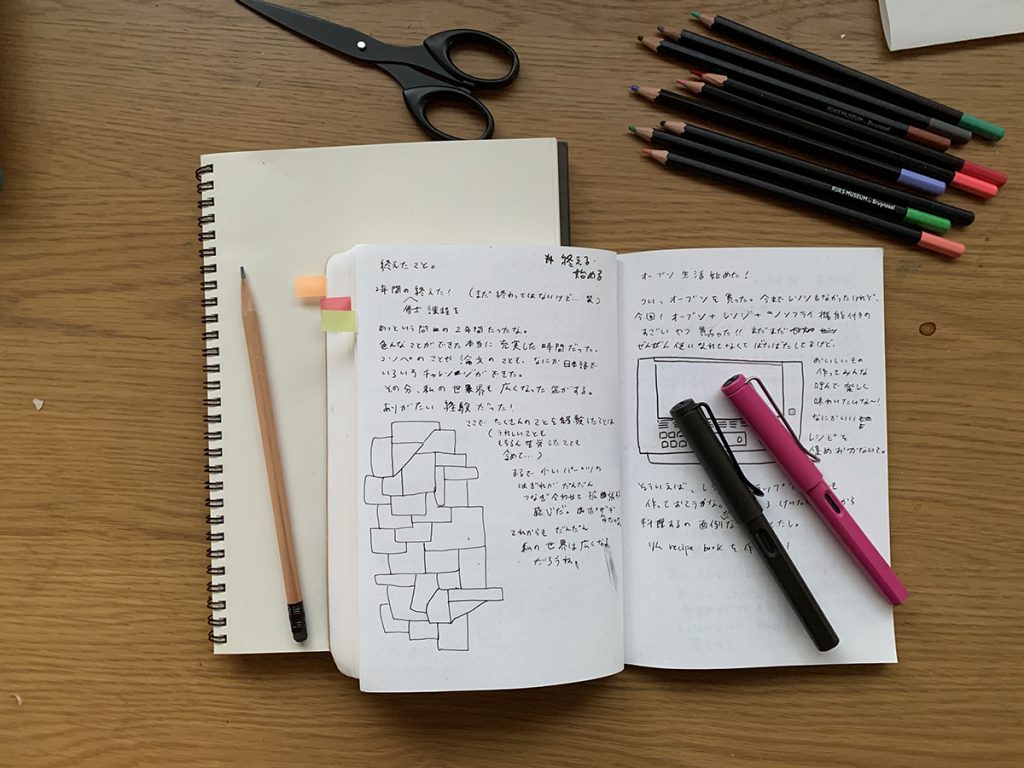 RIJKS MUSEUM by Bruynzeel
RIJKS MUSEUM by Bruynzeel
終えたこと。
終える・
始める
2年間の終えた! (まだ終わってはないけど…笑)
修士課程を
あっという間の2年間だったな。
色んなことができた本当に充実した時間だった。
コンペのことや論文のことも、なにか日本語で
いろいろチャレンジができた。
その分、私の世界も広くなった気がする。
ありがたい経験だった!
ここで たくさんのことを経験したことは
(うれしいことも
もちろん苦労したことも
含めて…)
まるで小さいパーツの
はぎれがだんだん
つなぎ合わせて
感じだ。
みたいな
これからもだんだん
私の世界は広くなる
だろうね。
オーブン生活始めた!
つい、オーブンを買った。今までレンジもなかったけれど、
今回!オーブン+レンジ+ノンフライ機能付きの
すごいやつ買っちゃった!! まだまだ
ぜんぜん使いなれてなくてばたばたしてるけど、
おいしいもの
作ってみんな
呼んで楽しく
味わいたいな〜!
なにかいい
レシピを
集めおかないて。
そういえば、レシ
作っておこうかな。
料理するの面倒な
りん recipe book を作